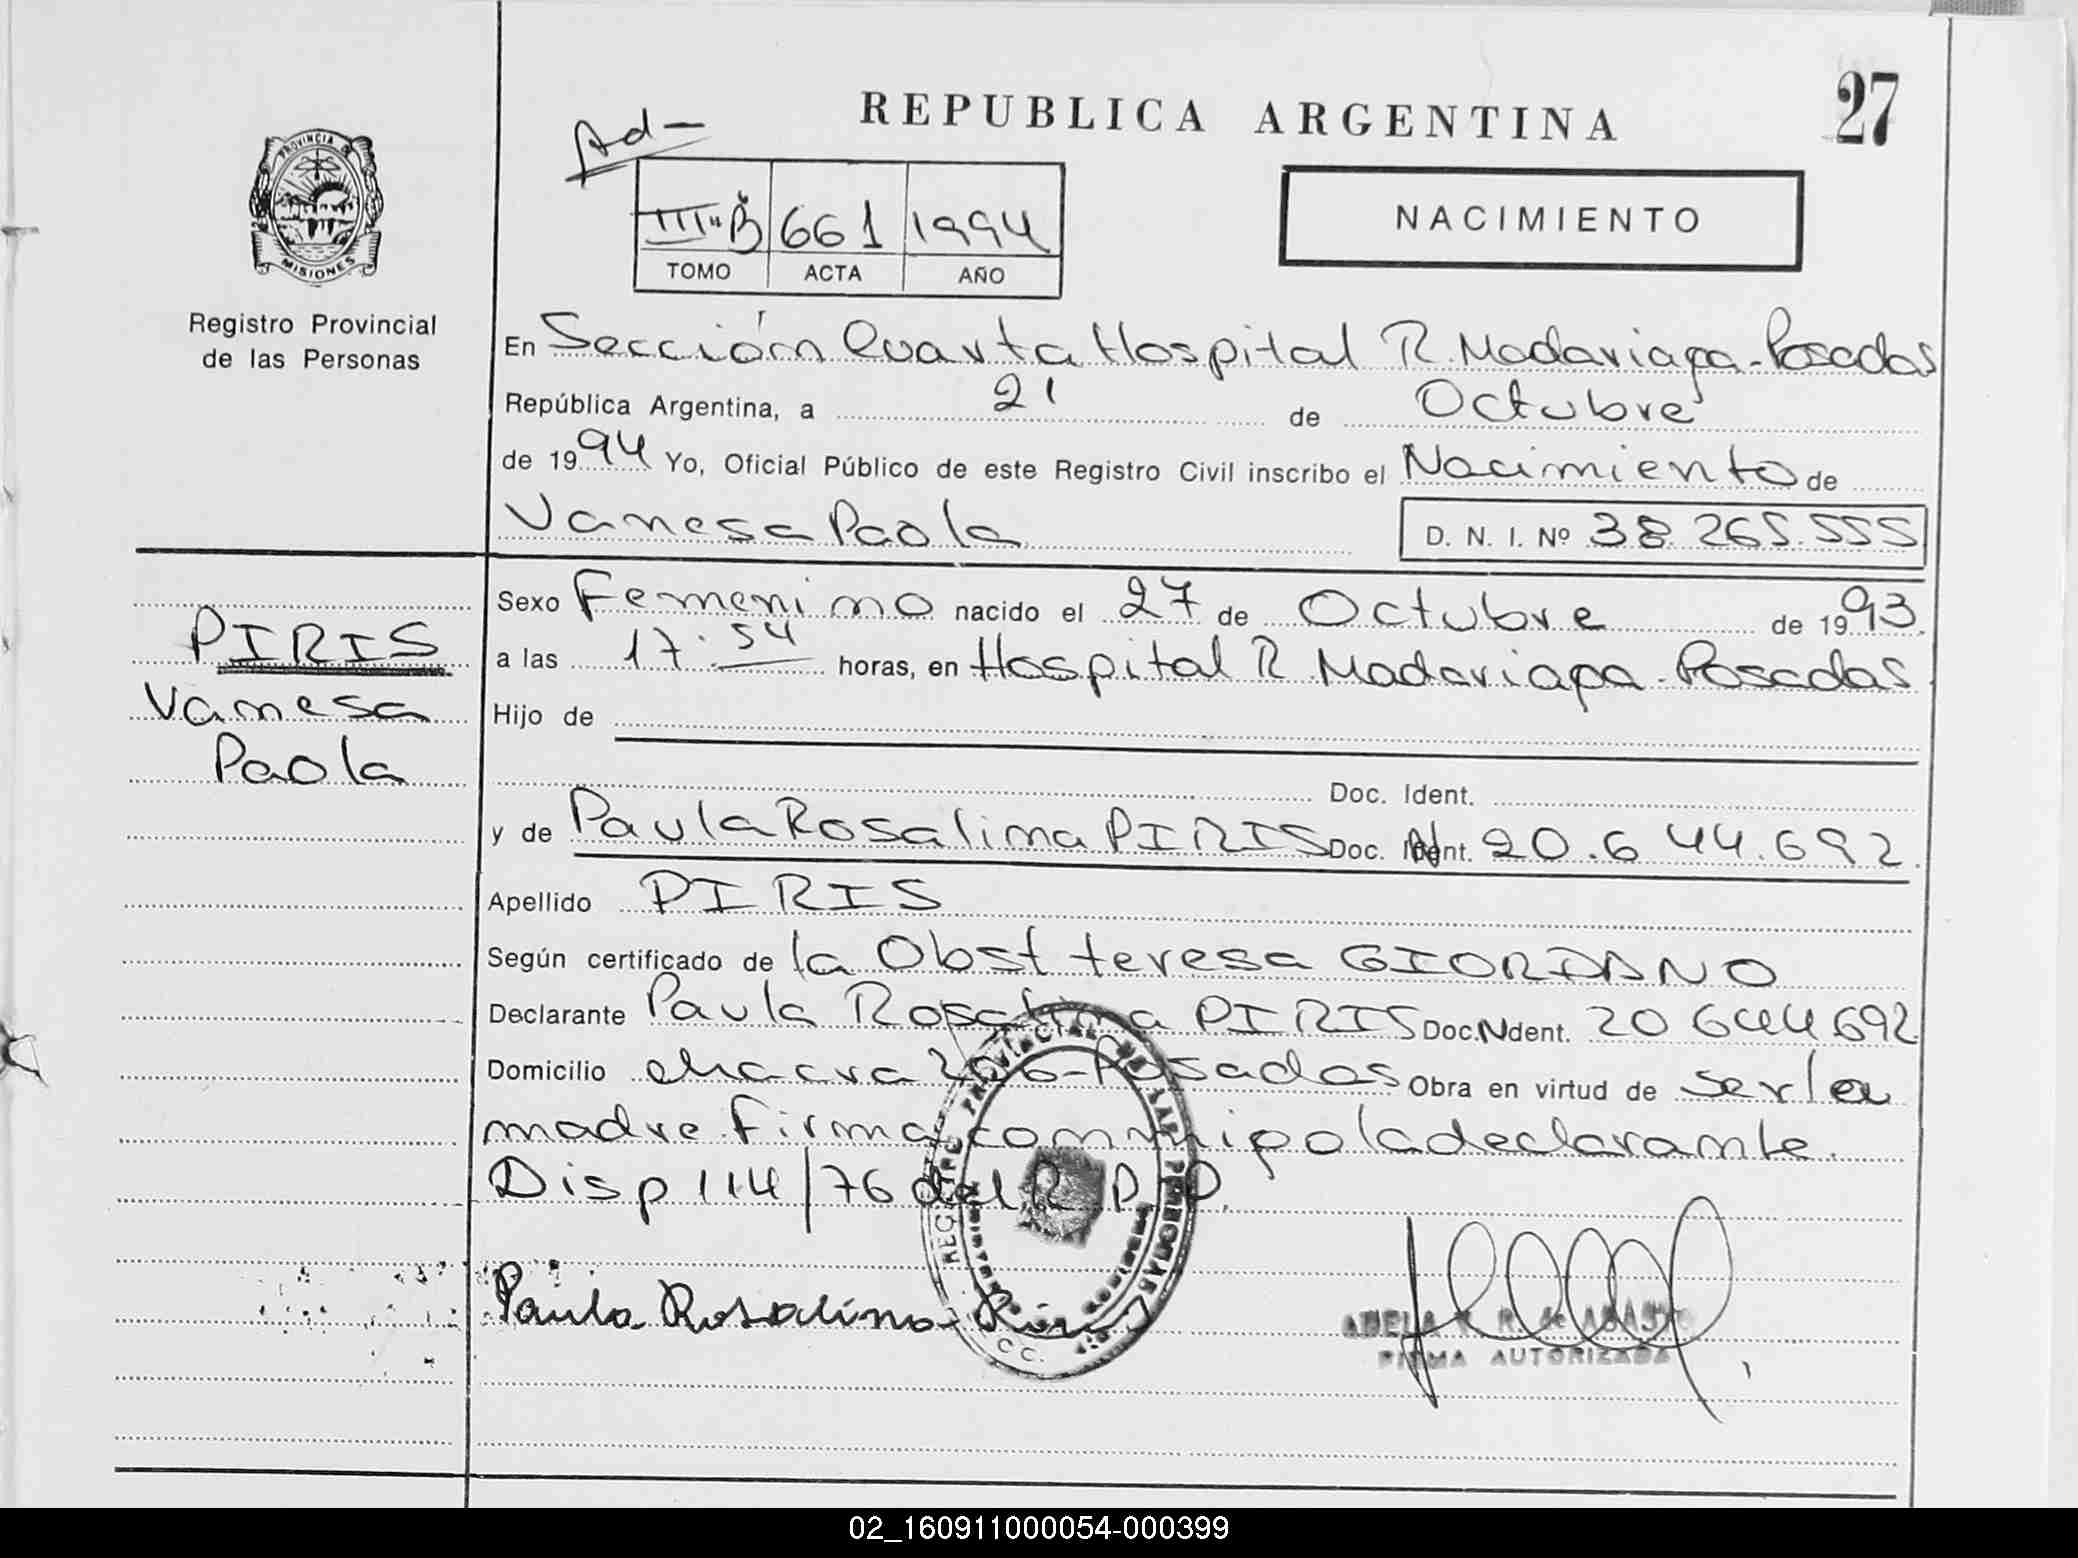 27
REPUBLICA ARGENTINA
Ad-
PROVINCIA D
MISIONES
III-B 661 1994
TOMO ACTA AÑO
NACIMIENTO
Registro Provincial
de las Personas
En Sección Cuarta Hospital R. Madariaga - Posadas
República Argentina, a 21 de Octubre
de 1994 Yo, Oficial Público de este Registro Civil inscribo el Nacimiento de
Vanesa Paola D. N. I. Nº 38 265.555
PIRIS
Vanesa
Paola
Sexo Femenino nacido el 27 de Octubre de 1993.
a las 17.54 horas, en Hospital R Madariaga - Posadas
Hijo de
Doc. Ident.
y de Paula Rosalina PIRIS Doc. Ident. 20.644.692.
Apellido PIRIS
Según certificado de la Obst teresa GIORDANO
Declarante Paula Rosalina PIRIS Doc. Ndent. 20 644 692.
Domicilio chacra 206 - Posadas Obra en virtud de ser la
madre. Firma conmigo la declarante.
Disp 114/76 del R. P. P.
Paula Rosalina
ADELA R. de
FIRMA AUTORIZADA
02_160911000054-000399